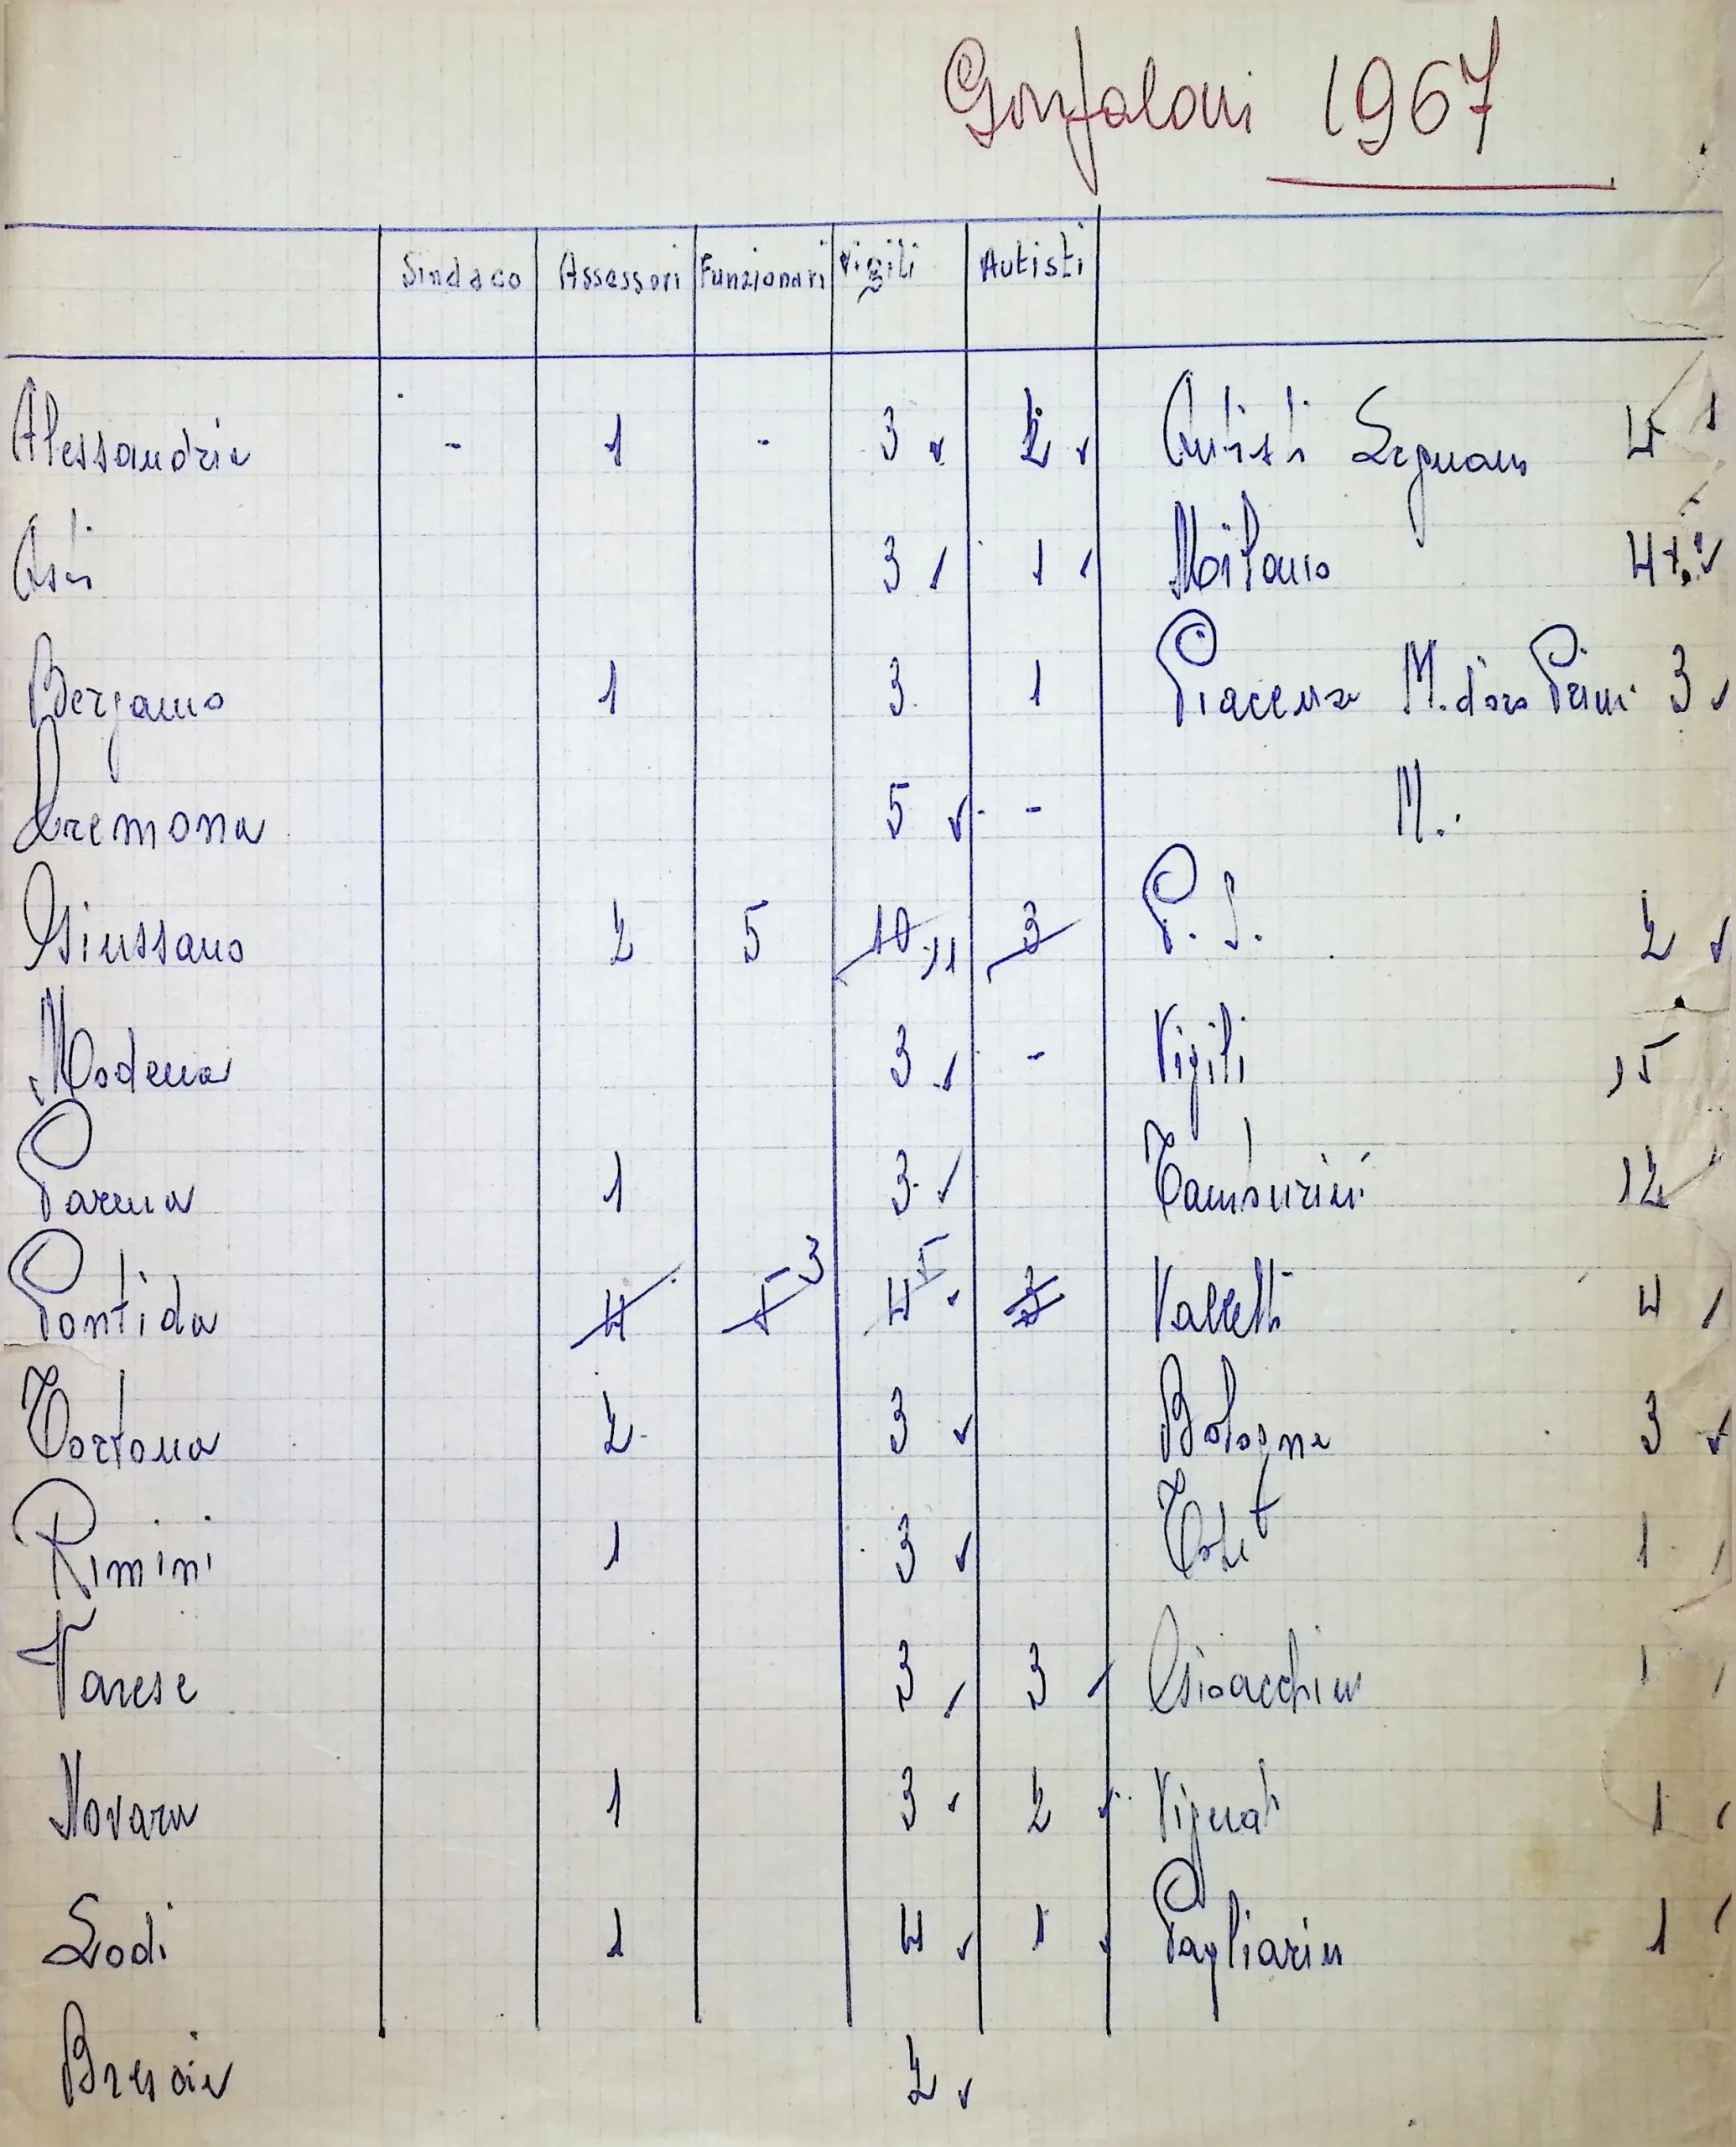 Gonfaloni 1967
Sindaco Assessori Funzionari Vigili Autisti
Alessandria - 1 - 3 2 Autisti Legnano 4
Asti 3 1 Milano 4
Bergamo 1 3 1 Piacenza M. d'oro 3
Cremona 5 - M.
Giussano 2 5 10 11 3 P. S. 2
Modena 3 - Vigili 15
Parma 1 3 Tamburini 12
Pontida 4 5 3 4 5 Valletti 4
Tortona 2 3 Bologna 3
Rimini 1 3 1
Varese 3 3 Gioacchino 1
Novara 1 3 2 Vignati 1
Lodi 1 4 1 Pagliarin 1
Brescia 2